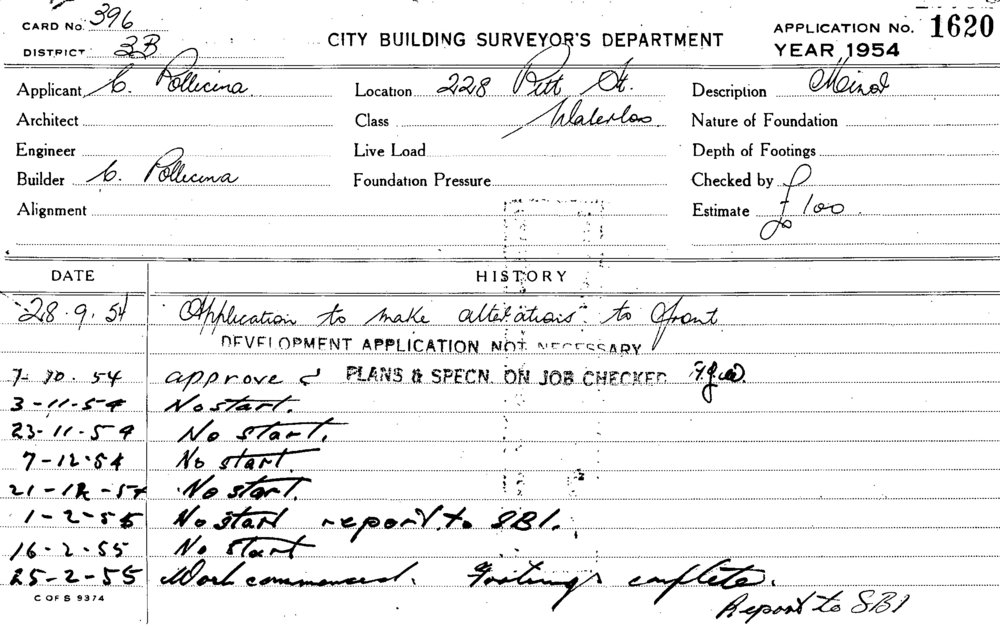 CARD No. 396
DISTRICT 3B
CITY BUILDING SURVEYOR'S DEPARTMENT
APPLICATION No. 1620
YEAR 1954
Applicant C. Pollicina
Location 228 Pitt St.
Description Minor
Architect
Class Waterloo
Nature of Foundation
Engineer
Live Load
Depth of Footings
Builder C. Pollicina
Foundation Pressure
Checked by
Alignment
Estimate £100
DATE HISTORY
28.9.54 Application to make alterations to front
DEVELOPMENT APPLICATION NOT NECESSARY
7-10.54 approved PLANS & SPECN. ON JOB CHECKED
3-11-54 No start.
23-11-54 No start.
7-12-54 No start.
21-12-54 No start.
1-2-55 No start report to SBI.
16-2-55 No start
25-2-55 Work commenced. Footings complete.
C OF S 9374
Report to SBI